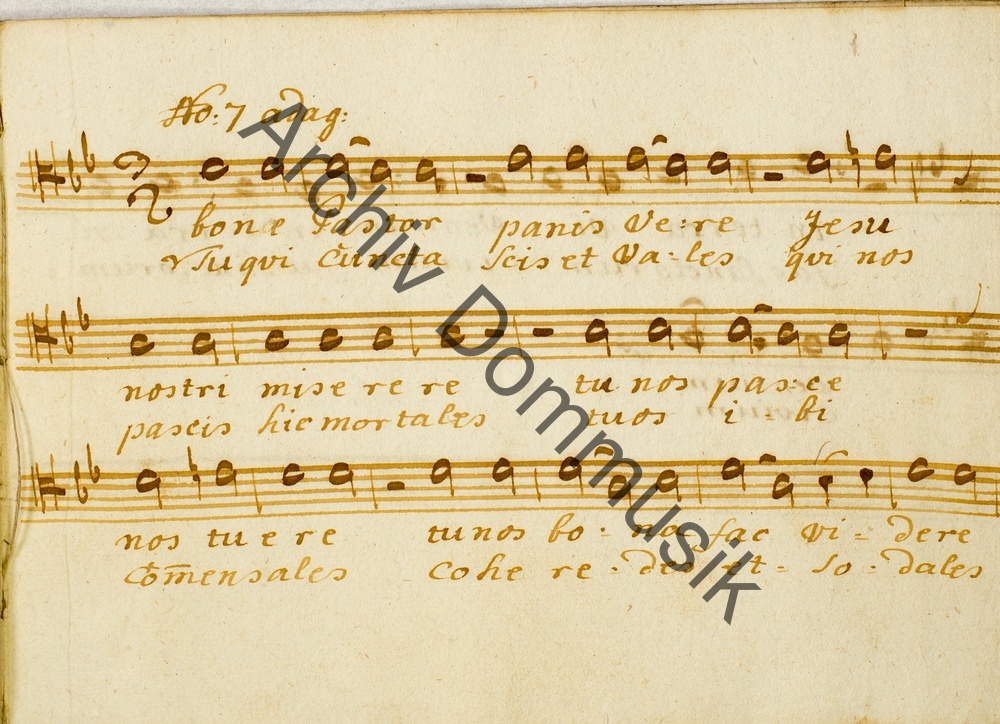 No: 7 adag:
bone Pastor panis Ve: re Jesu
Tu qui Cuncta Scis et Va-les qui nos
nostri mise re re tu nos pas:ce
pascis hic mortales tuos i = bi
nos tu e re tu nos bo: na fac Vi = dere
Com̄ensales Cohe re = des et = So = dales
Archiv Dommusik